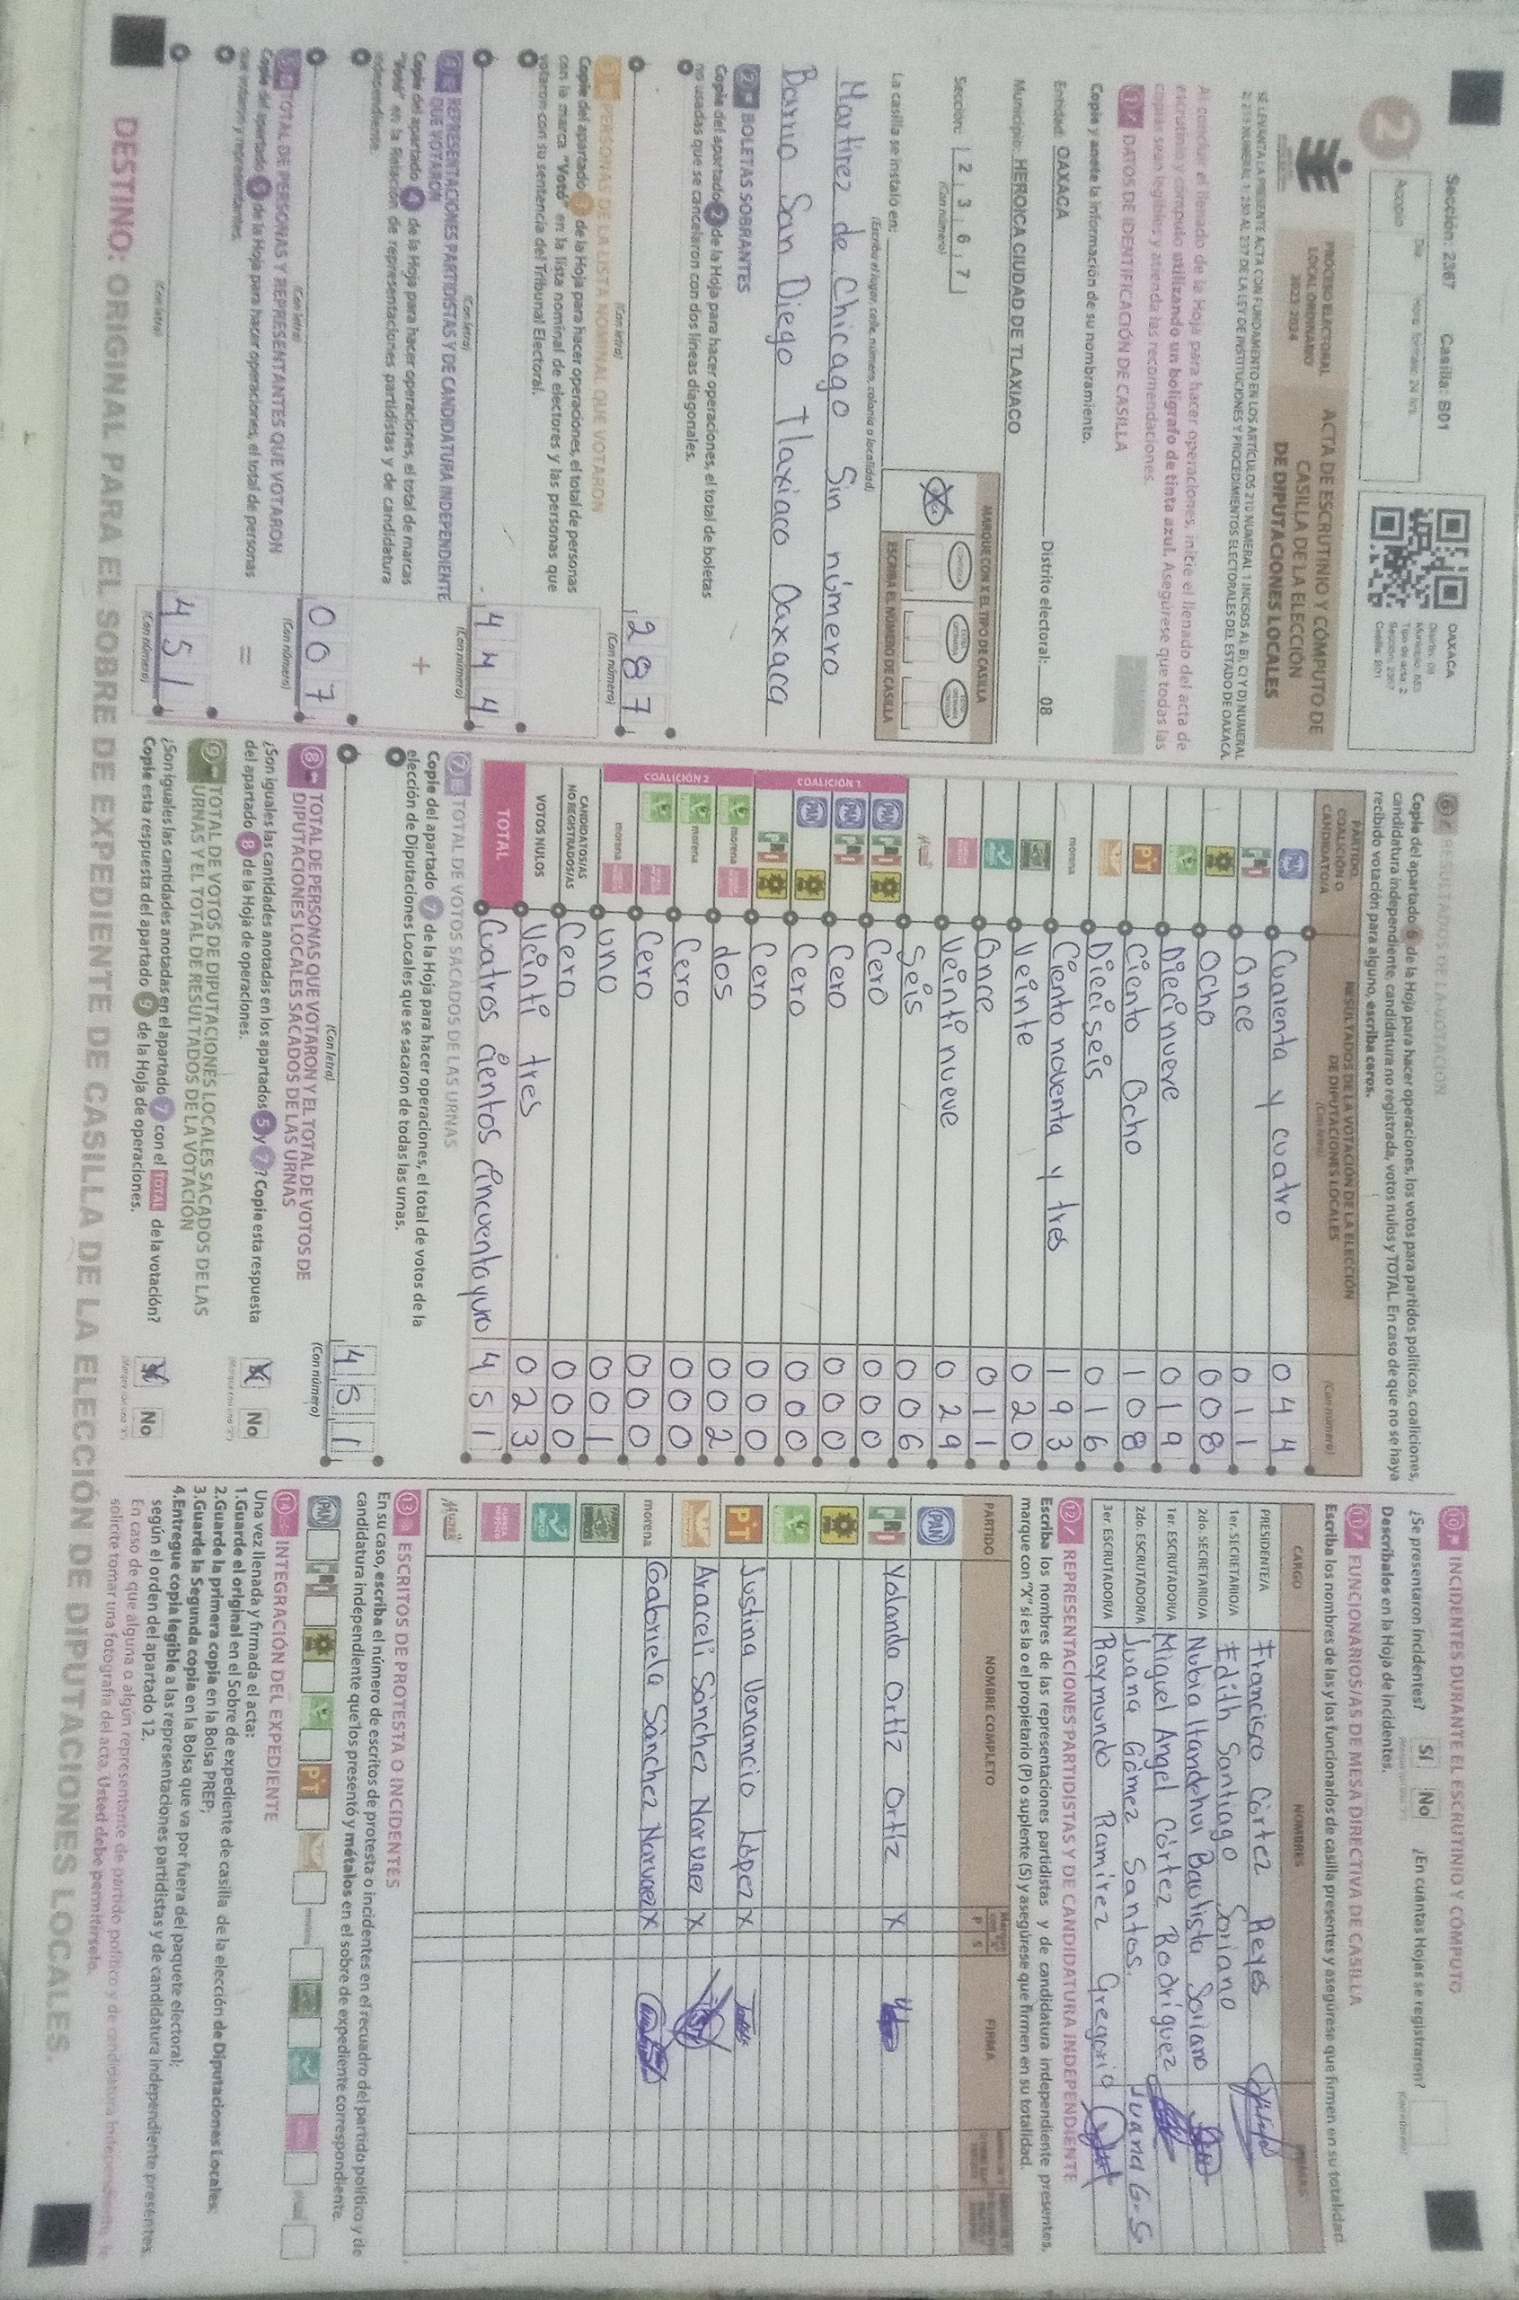 Sección: 2367 Casilla: B01
2
Acopio
Día
Hora, formato: 24 hrs.
OAXACA
Distrito: 08
Tipo de acta: 2
Sección: 2367
Casilla: B01
PROCESO ELECTORAL
LOCAL ORDINARIO
2023-2024
ACTA DE ESCRUTINIO Y CÓMPUTO DE
CASILLA DE LA ELECCIÓN
DE DIPUTACIONES LOCALES
Al concluir el llenado de la Hoja para hacer operaciones, inicie el llenado del acta de
escrutinio y cómputo utilizando un bolígrafo de tinta azul. Asegúrese que todas las
copias sean legibles y atienda las recomendaciones.
1 DATOS DE IDENTIFICACIÓN DE CASILLA
Copie y anote la información de su nombramiento.
Entidad: OAXACA Distrito electoral: 08
Municipio: HEROICA CIUDAD DE TLAXIACO
Sección: 2 3 6 7
(Con número)
MARQUE CON X EL TIPO DE CASILLA
ESCRIBA EL NÚMERO DE CASILLA
La casilla se instaló en:
(Escriba el lugar, calle, número, colonia o localidad)
Martírez de Chicago Sin número
Barrio San Diego Tlaxiaco Oaxaca
2 BOLETAS SOBRANTES
Copie del apartado 2 de la Hoja para hacer operaciones, el total de boletas
no usadas que se cancelaron con dos líneas diagonales.
287
(Con letra) (Con número)
3 PERSONAS DE LA LISTA NOMINAL QUE VOTARON
Copie del apartado 3 de la Hoja para hacer operaciones, el total de personas
con la marca "Votó" en la lista nominal de electores y las personas que
votaron con su sentencia del Tribunal Electoral.
444
(Con letra) (Con número)
4 REPRESENTACIONES PARTIDISTAS Y DE CANDIDATURA INDEPENDIENTE
QUE VOTARON
Copie del apartado 4 de la Hoja para hacer operaciones, el total de marcas
"Votó" en la Relación de representaciones partidistas y de candidatura
independiente.
+
007
(Con letra) (Con número)
5 TOTAL DE PERSONAS Y REPRESENTANTES QUE VOTARON
Copie del apartado 5 de la Hoja para hacer operaciones, el total de personas
que votaron y representantes.
=
451
(Con letra) (Con número)
6 RESULTADOS DE LA VOTACIÓN
Copie del apartado 6 de la Hoja para hacer operaciones, los votos para partidos políticos, coaliciones,
candidatura independiente, candidatura no registrada, votos nulos y TOTAL. En caso de que no se haya
recibido votación para alguno, escriba ceros.
PARTIDO, COALICIÓN O CANDIDATO/A
RESULTADOS DE LA VOTACIÓN DE LA ELECCIÓN
DE DIPUTACIONES LOCALES
(Con letra) (Con número)
PAN Cuarenta y cuatro 044
PRI once 011
ocho 008
Diecinueve 019
PT Ciento Ocho 108
Dieciseis 016
morena Ciento noventa y tres 193
Veinte 020
Once 011
Veinti nueve 029
Seis 006
COALICIÓN 1
PAN PRI Cero 000
PAN PRI Cero 000
PAN Cero 000
PRI Cero 000
COALICIÓN 2
morena dos 002
morena Cero 000
Cero 000
morena uno 001
CANDIDATOS/AS NO REGISTRADOS/AS Cero 000
VOTOS NULOS Veinti tres 023
TOTAL Cuatros cientos cincuenta y uno 451
7 TOTAL DE VOTOS SACADOS DE LAS URNAS
Copie del apartado 7 de la Hoja para hacer operaciones, el total de votos de la
elección de Diputaciones Locales que se sacaron de todas las urnas.
451
(Con letra) (Con número)
8 TOTAL DE PERSONAS QUE VOTARON Y EL TOTAL DE VOTOS DE
DIPUTACIONES LOCALES SACADOS DE LAS URNAS
¿Son iguales las cantidades anotadas en los apartados 5 y 7? Copie esta respuesta
del apartado 8 de la Hoja de operaciones.
No
9 TOTAL DE VOTOS DE DIPUTACIONES LOCALES SACADOS DE LAS
URNAS Y EL TOTAL DE RESULTADOS DE LA VOTACIÓN
¿Son iguales las cantidades anotadas en el apartado 7 con el TOTAL de la votación?
Copie esta respuesta del apartado 9 de la Hoja de operaciones.
No
10 INCIDENTES DURANTE EL ESCRUTINIO Y CÓMPUTO
¿Se presentaron incidentes? Sí No ¿En cuántas Hojas se registraron?
Descríbalos en la Hoja de incidentes.
11 FUNCIONARIOS/AS DE MESA DIRECTIVA DE CASILLA
Escriba los nombres de las y los funcionarios de casilla presentes y asegúrese que firmen en su totalidad.
CARGO NOMBRES FIRMAS
PRESIDENTE/A Francisco Córtez Reyes
1er. SECRETARIO/A Edith Santiago Soriano
2do. SECRETARIO/A Nubia Itandehui Bautista Soriano
1er. ESCRUTADOR/A Miguel Angel Córtez Rodríguez
2do. ESCRUTADOR/A Juana Gómez Santos. Juana G.S
3er. ESCRUTADOR/A Raymundo Ramírez Gregorio
12 REPRESENTACIONES PARTIDISTAS Y DE CANDIDATURA INDEPENDIENTE
Escriba los nombres de las representaciones partidistas y de candidatura independiente presentes,
marque con "X" si es la o el propietario (P) o suplente (S) y asegúrese que firmen en su totalidad.
PARTIDO NOMBRE COMPLETO P S FIRMA
PAN
PRI Yolanda Ortíz Ortíz X
PT Justina Venancio López X
Araceli Sánchez Narvaez X
morena Gabriela Sánchez Narvaez X
13 ESCRITOS DE PROTESTA O INCIDENTES
En su caso, escriba el número de escritos de protesta o incidentes en el recuadro del partido político y de
candidatura independiente que los presentó y métalos en el sobre de expediente correspondiente.
PAN PRI PT morena
14 INTEGRACIÓN DEL EXPEDIENTE
Una vez llenada y firmada el acta:
1.Guarde el original en el Sobre de expediente de casilla de la elección de Diputaciones Locales;
2.Guarde la primera copia en la Bolsa PREP;
3.Guarde la Segunda copia en la Bolsa que va por fuera del paquete electoral;
4.Entregue copia legible a las representaciones partidistas y de candidatura independiente presentes
según el orden del apartado 12.
En caso de que alguna o algún representante de partido político y de candidatura independiente, le
solicite tomar una fotografía del acta, Usted debe permitírselo.
DESTINO: ORIGINAL PARA EL SOBRE DE EXPEDIENTE DE CASILLA DE LA ELECCIÓN DE DIPUTACIONES LOCALES.